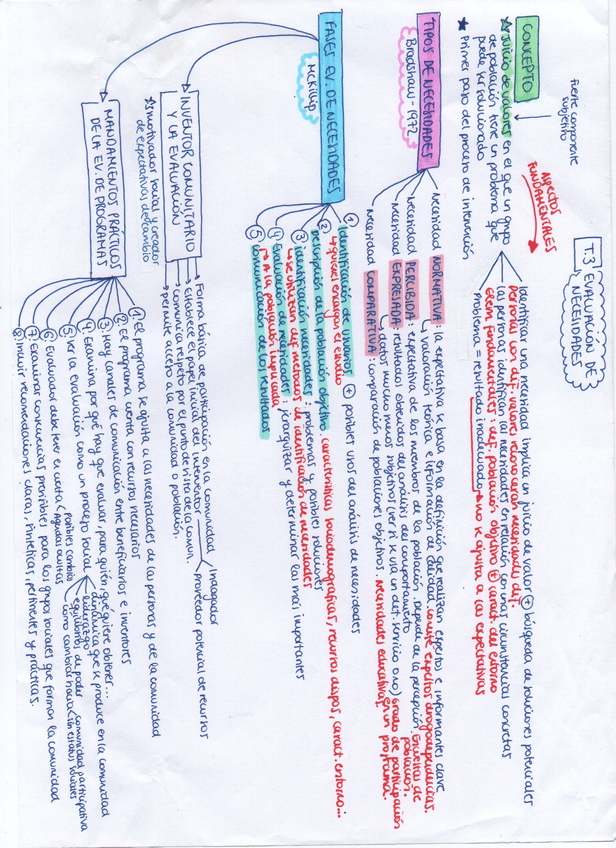 T.3 EVALUACIÓN DE
NECESIDADES
CONCEPTO
fuerte componente
subjetivo
★ Juicio de valores en el que un grupo
de población tiene un problema que
puede ser solucionado
★ Primer paso del proceso de intervención
ASPECTOS
FUNDAMENTALES
Identificar una necesidad implica un juicio de valor + búsqueda de soluciones potenciales
Personas con dif. valores reconocerán necesidades dif.
Las personas identifican las necesidades en relación con unas circunstancias concretas
Elem. fundamentales: def. población objetivo + caract. del entorno
Problema = resultado inadecuado → no se ajusta a las expectativas
TIPOS DE NECESIDADES
Bradshaw-1972
Necesidad NORMATIVA: la expectativa se basa en la definición que realizan expertos e informantes clave
↳ valoración teórica e información de calidad. Comité expertos drogodependencias.
Necesidad PERCIBIDA: expectativa de los miembros de la población, depende de la percepción. Encuesta de población.
Necesidad EXPRESADA: resultados obtenidos del análisis del comportamiento
↳ datos mucho menos subjetivos (ver si se usa un det. servicio o no) Grado de participación en un programa.
Necesidad COMPARATIVA: comparación de poblaciones objetivos. Necesidades educativas
FASES EV. DE NECESIDADES
McKillip
① Identificación de usuarios + posibles usos del análisis de necesidades
↳ quienes encargan el estudio
② Descripción de la población objetivo: características sociodemográficas, recursos disps, caract. entorno...
③ Identificación necesidades: problemas y posibles soluciones
↳ se utilizan dif. métodos de identificación de necesidades
④ Evaluación de necesidades: jerarquizar y determinar las más importantes
↳ A la población implicada
⑤ Comunicación de los resultados
INVENTOR COMUNITARIO
Y LA EVALUACIÓN
★ motivador social y creador
de expectativas de cambio
Forma básica de participación en la comunidad
establece el papel inicial del interventor
Indagador
Proveedor potencial de recursos
comunica respeto por el punto de vista de la comun.
permite acceso a la comunidad o población.
MANDAMIENTOS PRÁCTICOS
DE LA EV. DE PROGRAMAS
① El programa se ajusta a las necesidades de las personas y de la comunidad
② El programa cuenta con recursos necesarios
③ Hay canales de comunicación entre beneficiarios e inventores
④ Examina por qué hay que evaluar, para quién, qué quiere obtener...
⑤ Ver la evaluación como un proceso social
dinámica que se produce en la comunidad
liderazgo
equilibrios de poder
comunidad participativa
⑥ Evaluador debe tener en cuenta
Agendas ocultas
posibles cambios
como cambiar
⑦ Examinar consecuencias previsibles para los grupos sociales que forman la comunidad
⑧ Incluir recomendaciones claras, sintéticas, pertinentes y prácticas.